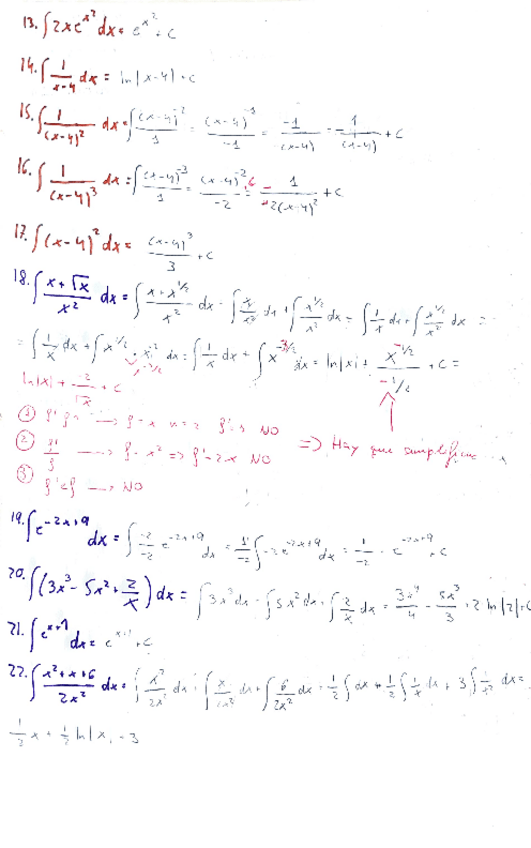 13. ∫2xe^(x²) dx = e^(x²) + c
14. ∫ 1/(x-4) dx = ln|x-4| + c
15. ∫ 1/(x-4)² dx = ∫ (x-4)^(-2)/1 = (x-4)^(-1)/(-1) = -1/(x-4) = -1/(x-4) + c
16. ∫ 1/(x-4)³ dx = ∫ (x-4)^(-3)/1 = (x-4)^(-2)/(-2) = 1/(-2(x-4)²) + c
17. ∫(x-4)² dx = (x-4)³/3 + c
18. ∫ (x+√x)/x² dx = ∫ (x+x^(1/2))/x² dx = ∫ x/x² dx + ∫ x^(1/2)/x² dx = ∫ 1/x dx + ∫ x^(1/2)/x² dx =
= ∫ 1/x dx + ∫ x^(1/2) · x^(-2) dx = ∫ 1/x dx + ∫ x^(-3/2) dx = ln|x| + x^(-1/2)/(-1/2) + c =
ln|x| + -2/√x + c
① NO
② f'/f → f = x² => f' = 2x NO => Hay que simplificar
③ NO
19. ∫e^(-2x+9) dx = ∫ -2/-2 e^(-2x+9) dx = 1/-2 ∫ -2e^(-2x+9) dx = 1/-2 · e^(-2x+9) + c
20. ∫(3x³ - 5x² + 2/x) dx = ∫3x³ dx - ∫5x² dx + ∫ 2/x dx = 3x⁴/4 - 5x³/3 + 2 ln|2| + c
21. ∫e^(x+7) dx = e^(x+7) + c
22. ∫ (x²+x+6)/2x² dx = ∫ x²/2x² dx + ∫ x/2x² dx + ∫ 6/2x² dx = 1/2 ∫ dx + 1/2 ∫ 1/x dx + 3 ∫ 1/x² dx =
1/2 x + 1/2 ln|x| - 3